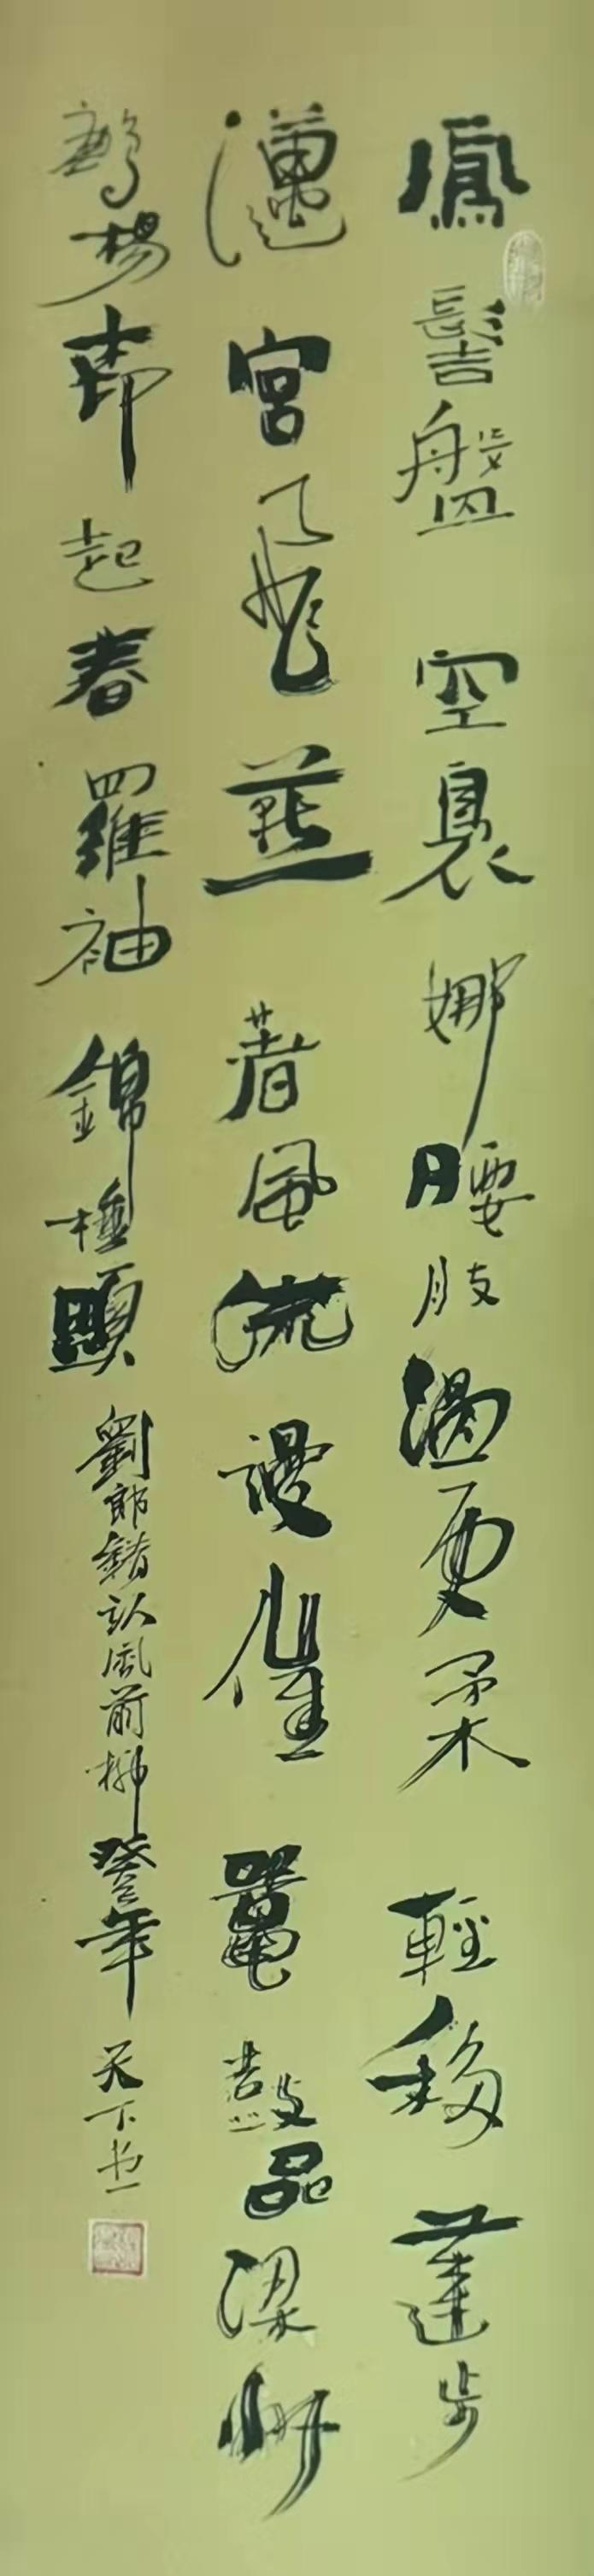 鳳髻盤空裊娜腰肢溫更柔輕移蓮步
漢宮飛燕著風流謾催鼉鼓品梁州
楊却起春羅袖錦頭劉郎錯認風前柳年天下